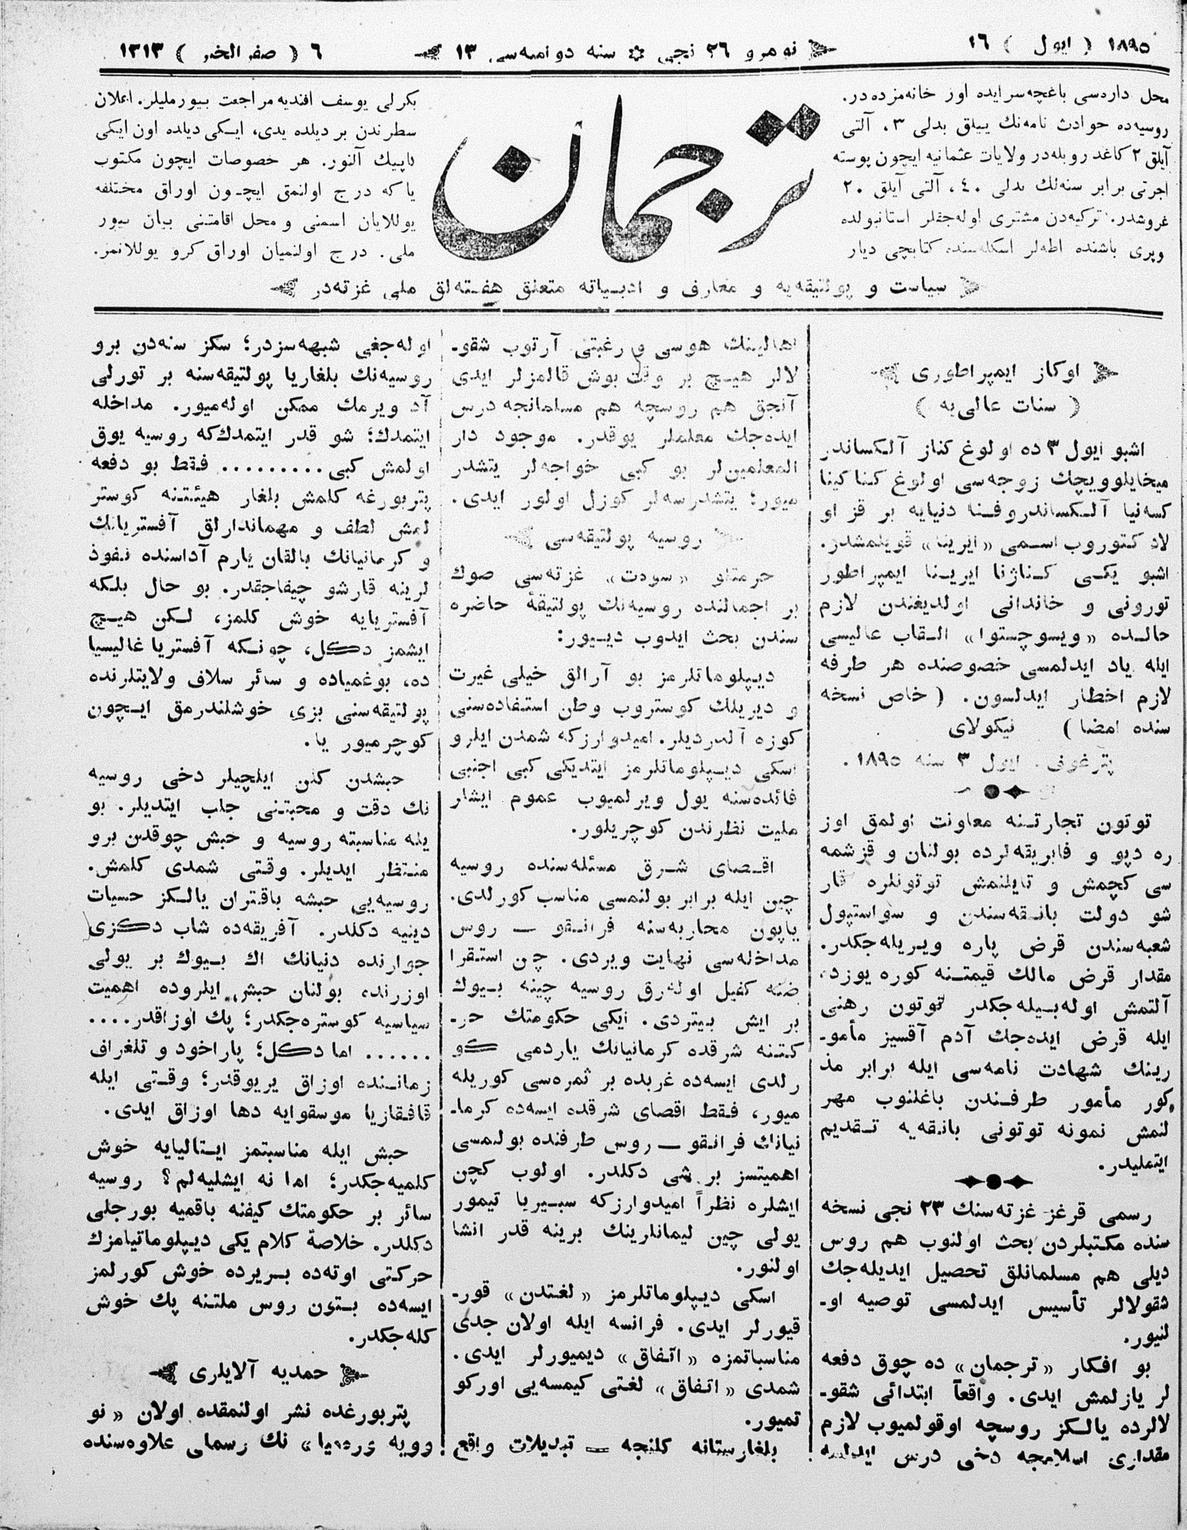 ١٨٩٥ ( ايول ) ١٦
نومرو ٢٦ نجى ✡ سنه دوامیه‌سی ١٣
٦ ( صفر الخير ) ١٣١٣
محل داره‌سى باغچه‌سرايده اوز خانه‌مزده‌در.
روسيه‌ده حوادث نامه‌نك ييللق بدلى ٣، آلتى
آيلق ٢ كاغد روبله‌در ولايات عثمانيه ايچون پوسته
اجرتى برابر سنه‌لك بدلى ٤٠، آلتى آيلق ٢٠
غروشدر. تركيه‌دن مشترى اوله‌جقلر استانبولده
ويرى باشنده اطه‌لر اسكله‌سنده كتابچى ديار
ترجمان
بكرلى يوسف افنديه مراجعت بيورمليلر. اعلان
سطرندن بر ديلده يدى، ايكى ديلده اون ايكى
كاپيك آلنور. هر خصوصات ايچون مكتوب
ياكه درج اولنمق ايچون اوراق مختلفه
يوللايان اسمنى و محل اقامتنى بيان بيور
ملى. درج اولنميان اوراق كرو يوللانمز.
سياست و پولتيقه‌يه و معارف و ادبياته متعلق هفته‌لق ملى غزته‌در
اوكاز ايمپراطورى
( سنات عالى‌يه )
اشبو ايول ٣ ده اولوغ كناز آلكساندر
ميخايلوويچك زوجه‌سى اولوغ كناكينا
كسه‌نيا آلكساندروفنه دنيايه بر قز او
لاد كتوروب اسمى «ايرينا» قويلمشدر.
اشبو يكى كناژنا ايرينا ايمپراطور
تورونى و خاندانى اولديغندن لازم
حالده «ويسوچستوا» القاب عاليسى
ايله ياد ايدلمسى خصوصنده هر طرفه
لازم اخطار ايدلسون. ( خاص نسخه
سنده امضا ) نيكولاى
پترغوف. ايول ٣ سنه ١٨٩٥.
توتون تجارتنه معاونت اولمق اوز
ره دپو و فابريقه‌لرده بولنان و قزشمه
سى كچمش و تايلنمش توتونلره قار
شو دولت بانقه‌سندن و سواستپول
شعبه‌سندن قرض پاره ويريله‌جكدر.
مقدار قرض مالك قيمتنه كوره يوزد،
آلتمش اوله‌بيله‌جكدر توتون رهنى
ايله قرض ايده‌جك آدم آقسيز مأمو-
رينك شهادت نامه‌سى ايله برابر مذ
كور مأمور طرفندن باغلنوب مهر
لنمش نمونه توتونى بانقه‌يه تقديم
ايتمليدر.
رسمى قرغز غزته‌سنك ٢٣ نجى نسخه
سنده مكتبلردن بحث اولنوب هم روس
ديلى هم مسلمانلق تحصيل ايديله‌جك
شقولالر تأسيس ايدلمسى توصيه او-
لنيور.
بو افكار «ترجمان» ده چوق دفعه
لر يازلمش ايدى. واقعاً ابتدائى شقو-
لالرده يالكز روسچه اوقولميوب لازم
مقدارى اسلامجه دخى درس ايدلسه
اهالينك هوسى و رغبتى آرتوب شقو-
لالر هيچ بر وقت بوش قالمزلر ايدى
آنجق هم روسچه هم مسلمانجه درس
ايده‌جك معلملر يوقدر. موجود دار
المعلمين‌لر بو كبى خواجه‌لر يتشدر
ميور؛ يتشدرسه‌لر كوزل اولور ايدى.
روسيه پولتيقه‌سى
حرمتلو «سودت» غزته‌سى صوك
بر اجمالنده روسيه‌نك پولتيقهٔ حاضره
سندن بحث ايدوب ديیور:
ديپلوماتلرمز بو آرالق خيلى غيرت
و ديريلك كوستروب وطن استفاده‌سنى
كوزه آلدرديلر. اميدوارزكه شمدن ايلرو
اسكى ديپلوماتلرمز ايتديكى كبى اجنبى
فائده‌سنه يول ويرلميوب عموم ايشلر
مليت نظرندن كوچريلور.
اقصاى شرق مسئله‌سنده روسيه
چين ايله برابر بولنمسى مناسب كورلدى.
ياپون محاربه‌سنه فرانقو — روس
مداخله‌سى نهايت ويردى. چن استقرا
ضنه كفيل اوله‌رق روسيه چينه بيوك
بر ايش بيتردى. ايكى حكومتك حر-
كتنه شرقده كرمانيانك ياردمى كو
رلدى ايسه‌ده غربده بر ثمره‌سى كوريله
ميور، فقط اقصاى شرقده ايسه‌ده كرما-
نيانك فرانقو — روس طرفنده بولنمسى
اهميتسز بر شى دكلدر. اولوب كچن
ايشلره نظراً اميدوارزكه سبيريا تيمور
يولى چين ليمانلرينك برينه قدر انشا
اولنور.
اسكى ديپلوماتلرمز «لغتدن» قور-
قيورلر ايدى. فرانسه ايله اولان جدى
مناسباتمزه «اتفاق» ديميورلر ايدى.
شمدى «اتفاق» لغتى كيمسه‌يى اوركو
تميور.
بلغارستانه كلنجه — تبديلات واقع
اوله‌جغى شبهه‌سزدر؛ سكز سنه‌دن برو
روسيه‌نك بلغاريا پولتيقه‌سنه بر تورلى
آد ويرمك ممكن اوله‌ميور. مداخله
ايتمدك؛ شو قدر ايتمدك‌كه روسيه يوق
اولمش كبى......... فقط بو دفعه
پتربورغه كلمش بلغار هيئتنه كوستر
لمش لطف و مهماندارلق آفستريانك
و كرمانيانك بالقان يارم آداسنده نفوذ
لرينه قارشو چيقاجقدر. بو حال بلكه
آفستريايه خوش كلمز، لكن هيچ
ايشمز دكل، چونكه آفستريا غاليسيا
ده، بوغمياده و سائر سلاف ولايتلرنده
پولتيقه‌سنى بزى خوشلندرمق ايچون
كوچرميور يا.
حبشدن كلن ايلچيلر دخى روسيه
نك دقت و محبتنى جلب ايتديلر. بو
يله مناسبته روسيه و حبش چوقدن برو
منتظر ايديلر. وقتى شمدى كلمش.
روسيه‌يى حبشه باقتران يالكز حسيات
دينيه دكلدر. آفريقه‌ده شاب دكزى
جوارنده دنيانك اك بيوك بر يولى
اوزرنده، بولنان حبش، ايلروده اهميت
سياسيه كوستره‌جكدر؛ پك اوزاقدر....
...... اما دكل؛ پاراخود و تلغراف
زماننده اوزاق يريوقدر؛ وقتى ايله
قافقازيا موسقوايه دها اوزاق ايدى.
حبش ايله مناسبتمز ايتاليايه خوش
كلميه‌جكدر؛ اما نه ايشليه‌لم؟ روسيه
سائر بر حكومتك كيفنه باقميه بورجلى
دكلدر. خلاصهٔ كلام يكى ديپلوماتيامزك
حركتى اوته‌ده بريرده خوش كورلمز
ايسه‌ده بتون روس ملتنه پك خوش
كله‌جكدر.
حمديه آلايلرى
پتربورغده نشر اولنمقده اولان «نو
وويه وره‌ميا» نك رسمالى علاوه‌سنده